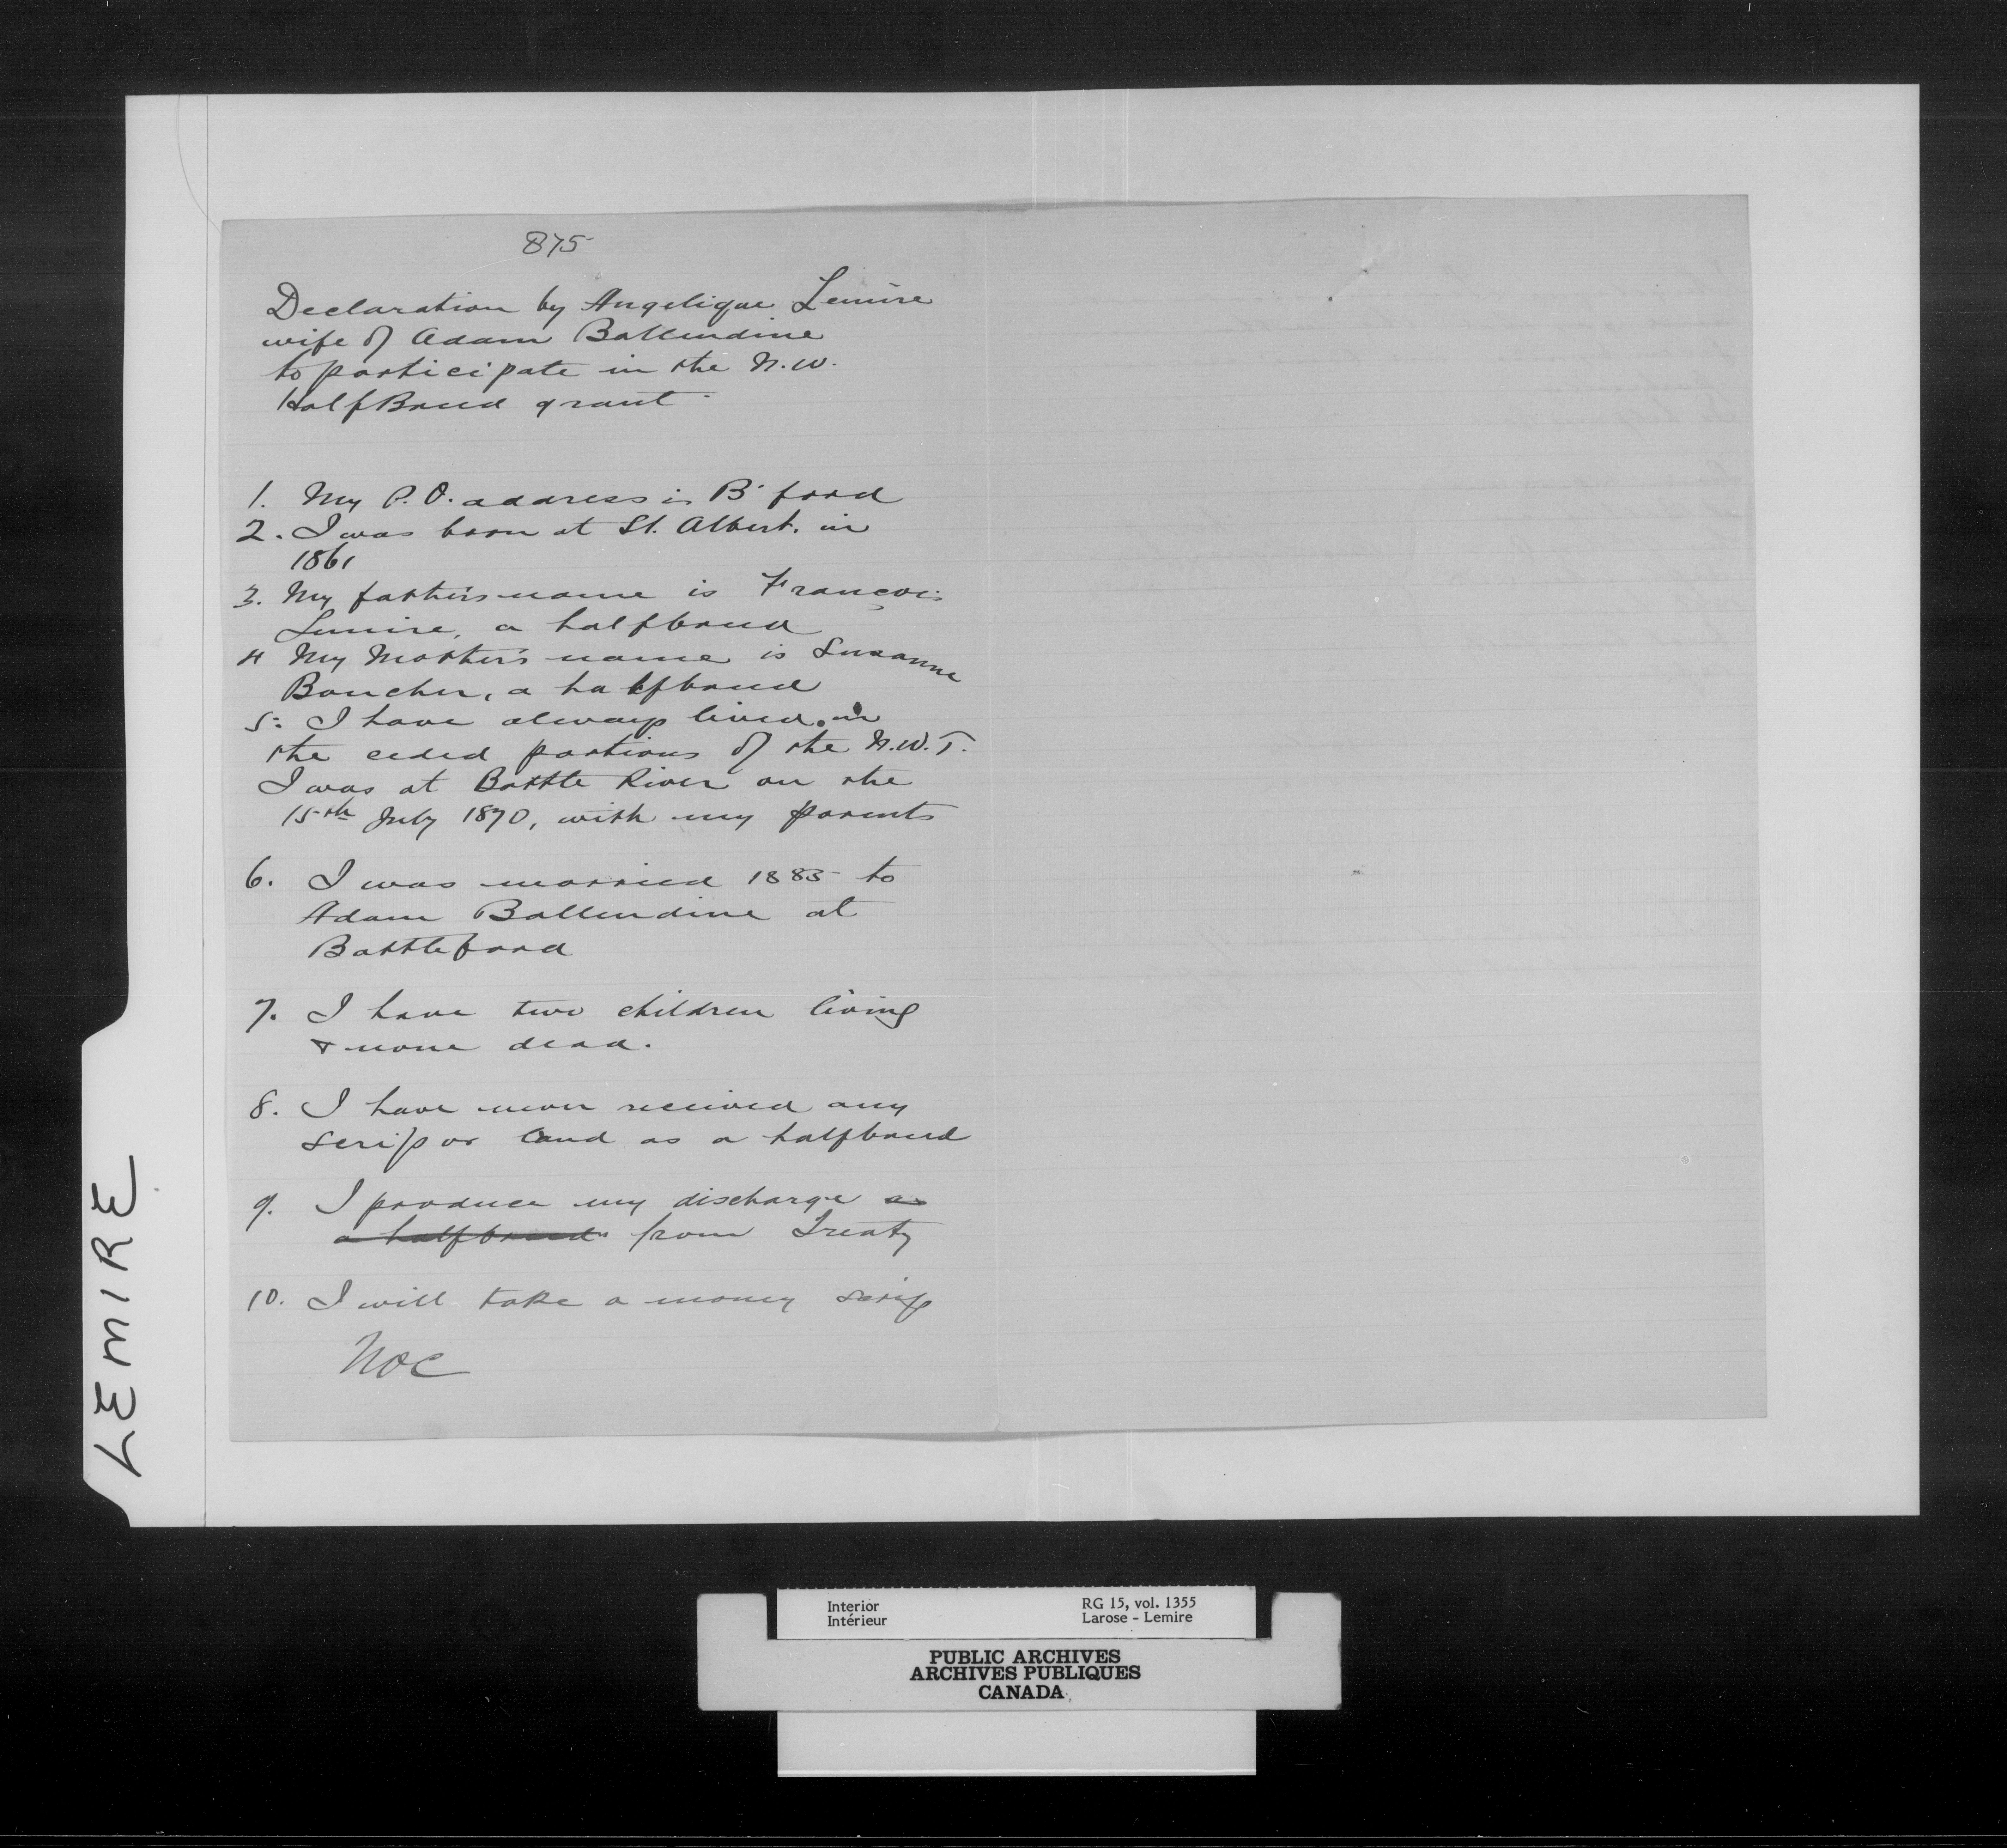 875
Declaration by Angelique Lemire
wife of Adam Ballendine
to participate in the N.W.
HalfBreed grant.
1. My P.O. address is B'ford
2. I was born at St. Albert. in
1861
3. My father's name is François
Lemire, a halfbreed
4 My Mother's name is Susanne
Boucher, a halfbreed
5: I have always lived in
the ceded portions of the N.W.T.
I was at Battle River on the
15th July 1870, with my parents
6. I was married 1883 to
Adam Ballendine at
Battleford
7. I have two children living
& none dead.
8. I have never received any
scrip or land as a halfbreed
9. I produce my discharge as
a halfbreed from Treaty
10. I will take a money scrip
LEMIRE
Interior
Intérieur
RG 15, vol. 1355
Larose - Lemire
PUBLIC ARCHIVES
ARCHIVES PUBLIQUES
CANADA